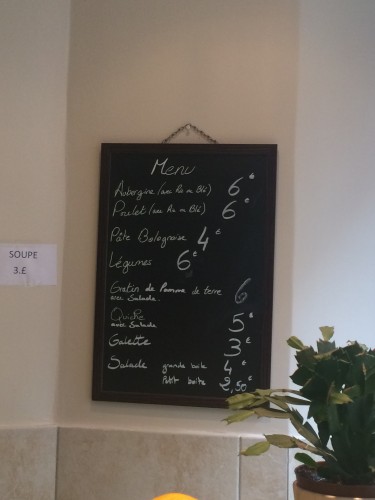 SOUPE
3.£
Menu
Aubergine (avec Riz ou Blé) 6€
Poulet (avec Riz ou Blé) 6€
Pâte Bolognaise 4€
Légumes 6€
Gratin de Pomme de terre 6
avec Salade.
Quiche 5€
avec Salade
Galette 3€
Salade grande boite 4€
Petit boite 2,50€